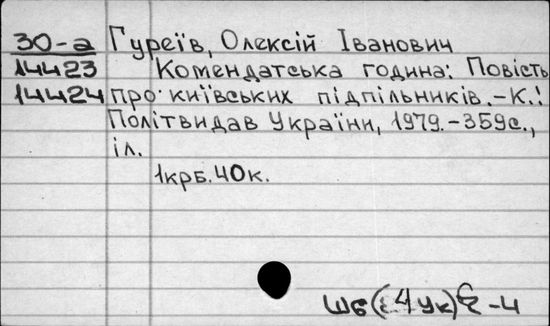 30-а Гуреїв, Олексій Іванович
14423 Комендатська година: Повість
14424 про київських підпільників.-К.:
Політвидав України, 1979.-359с.,
іл.
1крб.40к.
Шб(4Ук)